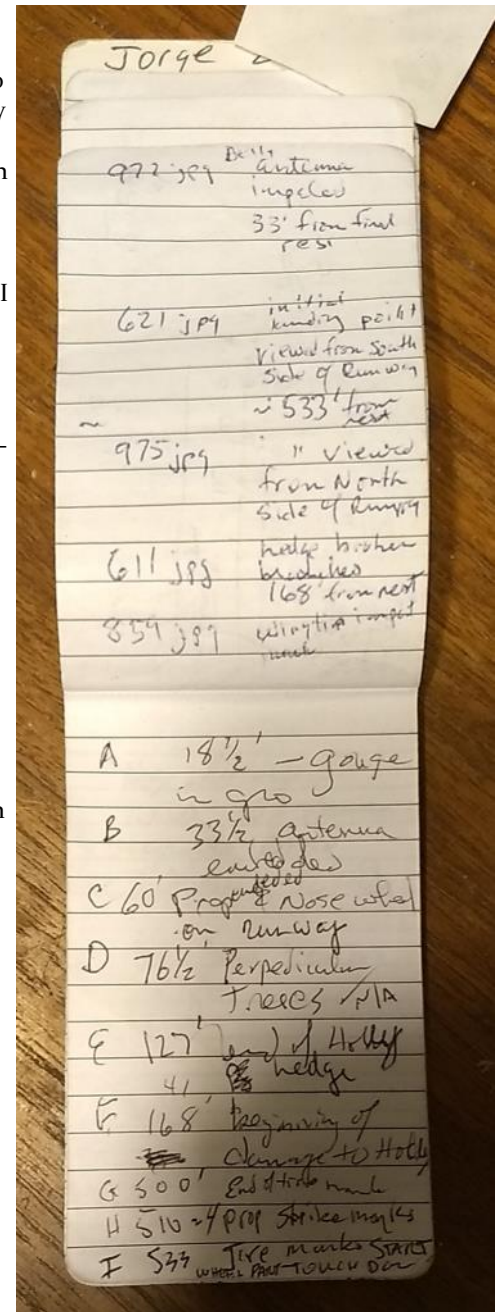 Jorge
972 jpg Belly antenna
impaled
33' from final
rest
621 jpg initial
landing point
viewed from South
side of Runway
~ 533' from
rest
~
975 jpg " viewed
from North
side of Runway
611 jpg hedge broken
branches
168' from rest
859 jpg wingtip impact
mark
A 18 1/2' - gouge
in gro
B 33 1/2, antenna
embedded
C 60' Prop & Nose wheel
on runway
D 76 1/2' Perpedicular
Trees N/A
E 127' end of Holly
41 hedge
F 168' beginning of
damage to Holly
G 500' End of tire mark
H 510 = 4 prop strike marks
I 533 Tire marks START
WHEEL PANT TOUCH DOWN